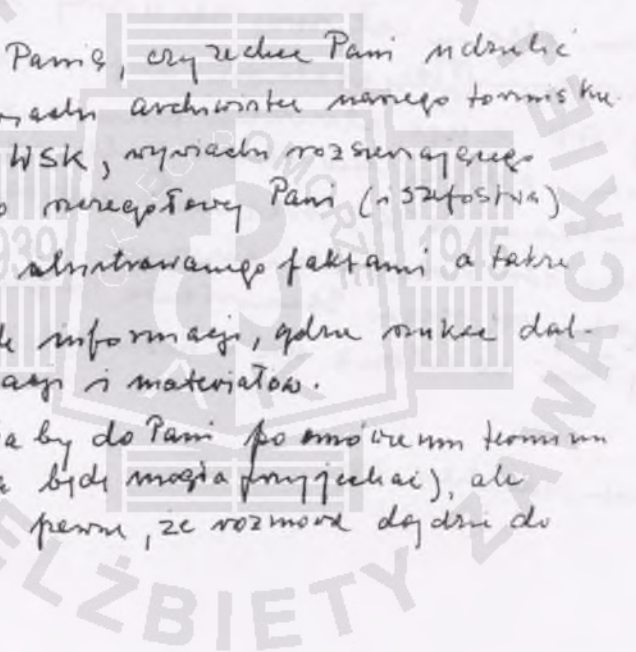 Panią, czy zechce Pani udzielić
archiwistce naszego toruńskie
WSK, wywiadu rozszerzającego
Pani (i szefostwa)
ilustrowanego faktami a także
informacji, gdzie szukać dal-
acji i materiałów.
a by do Pani po omówieniu terminu
będę mogła przyjechać), ale
pewna, że rozmowa dojdzie do
1939
1945
POMORZE
AK
ELŻBIETY ZAWACKIEJ